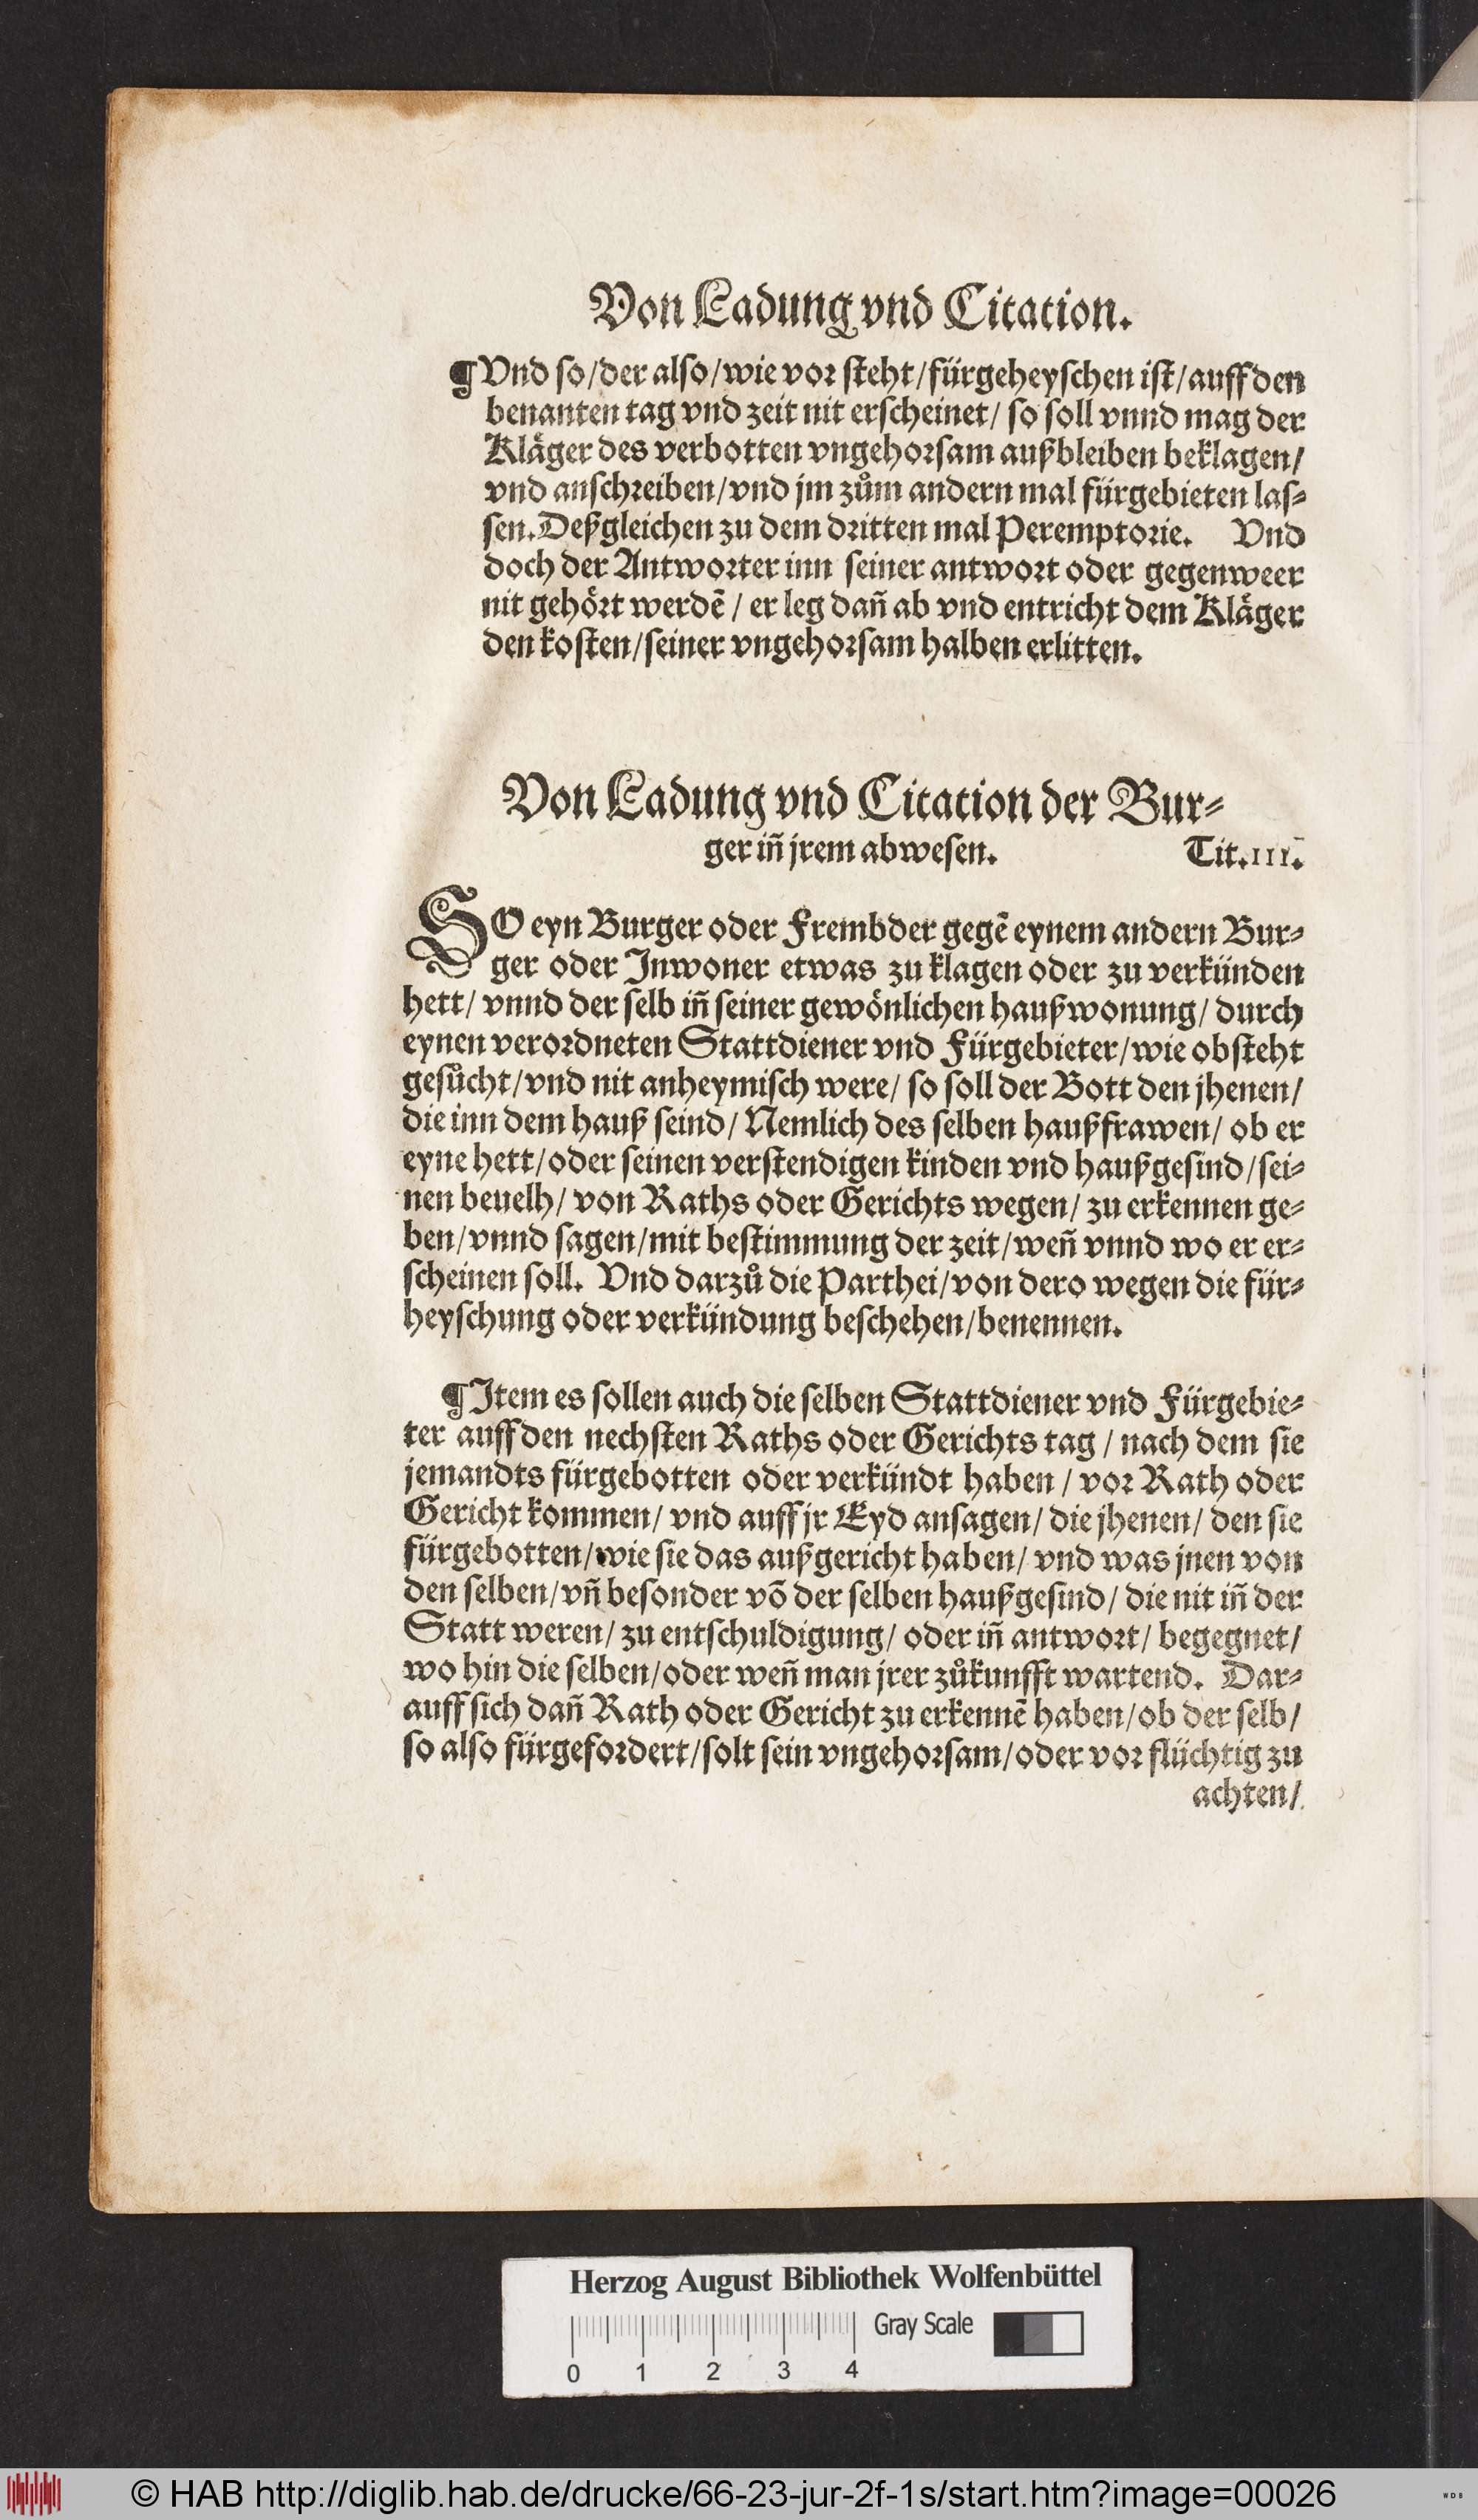 Von Ladung vnd Citation.
¶ Vnd so/der also/wie vor steht/fürgeheyschen ist/auff den
benanten tag vnd zeit nit erscheinet/ so soll vnnd mag der
Kläger des verbotten vngehorsam außbleiben beklagen/
vnd anschreiben/vnd jm zům andern mal fürgebieten las-
sen. Deßgleichen zu dem dritten mal Peremptorie. Vnd
doch der Antworter inn seiner antwort oder gegenweer
nit gehört werdē / er leg dañ ab vnd entricht dem Kläger
den kosten/seiner vngehorsam halben erlitten.
Von Ladung vnd Citation der Bur-
ger iñ jrem abwesen. Tit.III.
SO eyn Burger oder Frembder gegē eynem andern Bur-
ger oder Inwoner etwas zu klagen oder zu verkünden
hett/ vnnd der selb iñ seiner gewönlichen haußwonung/ durch
eynen verordneten Stattdiener vnd Fürgebieter/wie obsteht
gesůcht/vnd nit anheymisch were/ so soll der Bott den jhenen/
die inn dem hauß seind/ Nemlich des selben haußfrawen/ ob er
eyne hett/oder seinen verstendigen kinden vnd haußgesind/sei-
nen beuelh/ von Raths oder Gerichts wegen/ zu erkennen ge-
ben/vnnd sagen/mit bestimmung der zeit/weñ vnnd wo er er-
scheinen soll. Vnd darzů die Parthei/von dero wegen die für-
heyschung oder verkündung beschehen/benennen.
¶ Item es sollen auch die selben Stattdiener vnd Fürgebie-
ter auff den nechsten Raths oder Gerichts tag / nach dem sie
jemandts fürgebotten oder verkündt haben / vor Rath oder
Gericht kommen/ vnd auff jr Eyd ansagen/ die jhenen/ den sie
fürgebotten/wie sie das außgericht haben/ vnd was jnen von
den selben/vñ besonder võ der selben haußgesind/ die nit iñ der
Statt weren/ zu entschuldigung/ oder iñ antwort/ begegnet/
wo hin die selben/oder weñ man jrer zůkunfft wartend. Dar-
auff sich dañ Rath oder Gericht zu erkennē haben/ob der selb/
so also fürgefordert/solt sein vngehorsam/oder vor flüchtig zu
achten/
Herzog August Bibliothek Wolfenbüttel
Gray Scale
0 1 2 3 4
© HAB http://diglib.hab.de/drucke/66-23-jur-2f-1s/start.htm?image=00026
WDB